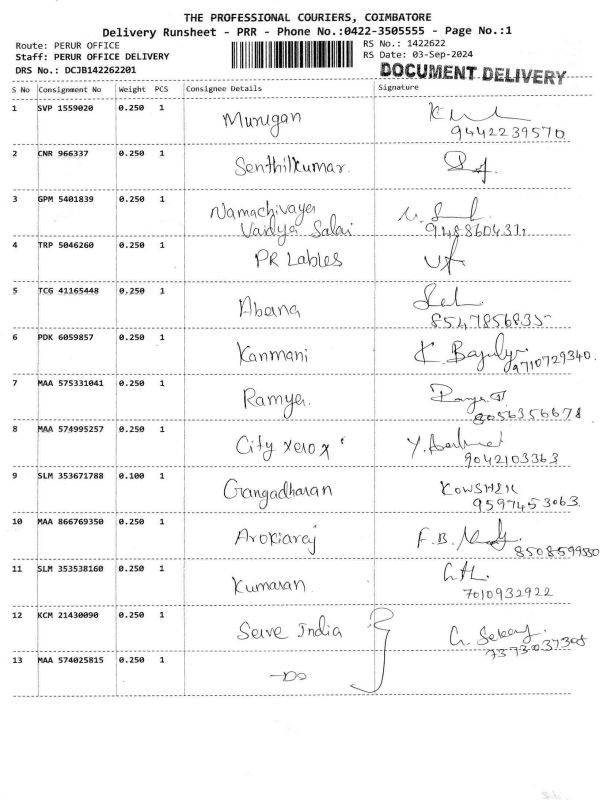 THE PROFESSIONAL COURIERS, COIMBATORE
Delivery Runsheet - PRR - Phone No.:0422-3505555 - Page No.:1
Route: PERUR OFFICE RS No.: 1422622
Staff: PERUR OFFICE DELIVERY RS Date: 03-Sep-2024
DRS No.: DCJB142262201 DOCUMENT DELIVERY
S No Consignment No Weight PCS Consignee Details Signature
1 SVP 1559020 0.250 1 Murugan
9442239570
2 CNR 966337 0.250 1 Senthilkumar.
3 GPM 5401839 0.250 1 Namachivaya
Vaidya Salai
4 TRP 5046260 0.250 1 PR Lables
5 TCG 41165448 0.250 1 Abana
8547856835
6 PDK 6059857 0.250 1 Kanmani K.
9710729340.
7 MAA 575331041 0.250 1 Ramya.
8056356678
8 MAA 574995257 0.250 1 City xerox
9042103363
9 SLM 353671788 0.100 1 Gangadharan
9597453063.
10 MAA 866769350 0.250 1 Arokiaraj F.B.
8508599550
11 SLM 353538160 0.250 1 Kumaran
7010932922
12 KCM 21430090 0.250 1 Serve India G. Sekar.
7373037308
13 MAA 574025815 0.250 1 -Do